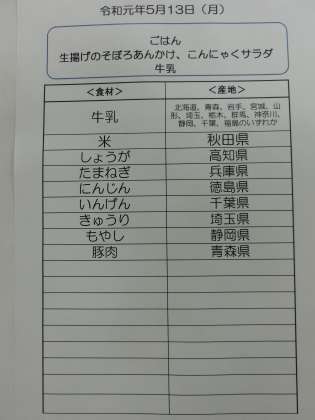 令和元年5月13日（月）
ごはん
生揚げのそぼろあんかけ、こんにゃくサラダ
牛乳
＜食材＞ ＜産地＞
牛乳 北海道、青森、岩手、宮城、山
形、埼玉、栃木、群馬、神奈川、
静岡、千葉、福島のいずれか
米 秋田県
しょうが 高知県
たまねぎ 兵庫県
にんじん 徳島県
いんげん 千葉県
きゅうり 埼玉県
もやし 静岡県
豚肉 青森県